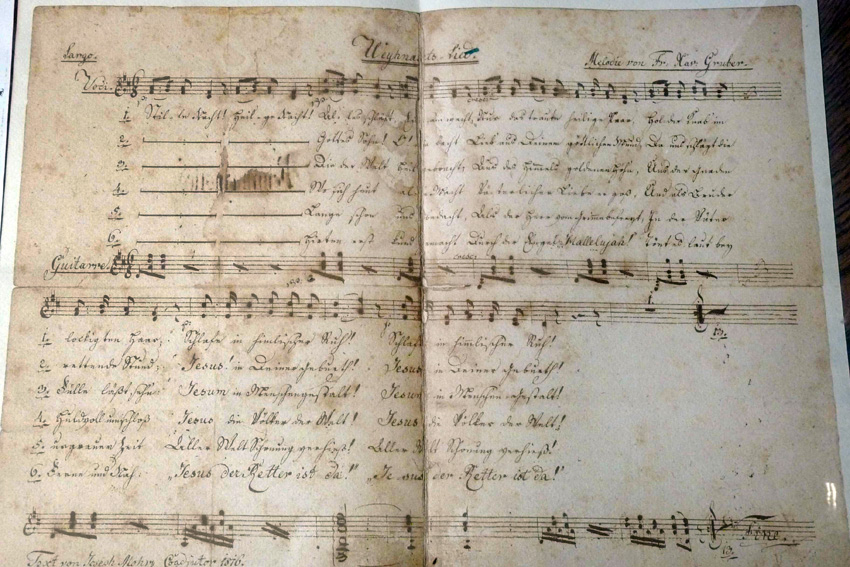 Largo. Weyhnachts-Lied. Melodie von Fr. Xav. Gruber.
Voci.
1. Stille Nacht! Heilige Nacht! Alles schläft, einsam wacht, Nur das traute heilige Paar, Hol der Knab im
2. Gottes Sohn! O! lacht Lieb aus Deinem göttlichen Mund, Da uns schlägt die
3. Die der Welt Heil gebracht, Aus des Himmels goldenen Höhn, Aus der Gnaden
4. Wo sich heut alle Macht Väterlicher Liebe ergoß, Und als Bruder
5. Lange schon uns bedacht, Als der Herr vom Grimme befreyt, In der Väter
6. Hirten erst kund gemacht Durch der Engel „Hallelujah!" Tönt es laut bey
Guitarre.
1. lockigten Haar; Schlafe in himlischer Ruh! Schlafe in himmlischer Ruh!
2. rettende Stund; Jesus! in Deiner Geburth! Jesus in Deiner Geburth!
3. Fülle läßt sehn Jesum in Menschengestalt! Jesum in Menschengestalt!
4. Huldvoll umschloß Jesus die Völker der Welt! Jesus die Völker der Welt!
5. urgrauer Zeit Aller Welt Schonung verhieß! Aller Welt Schonung verhieß!
6. Ferne und Nah: „Jesus der Retter ist da!" „Jesus der Retter ist da!"
Fine.
Text von Joseph Mohr Coadjutor 1816.